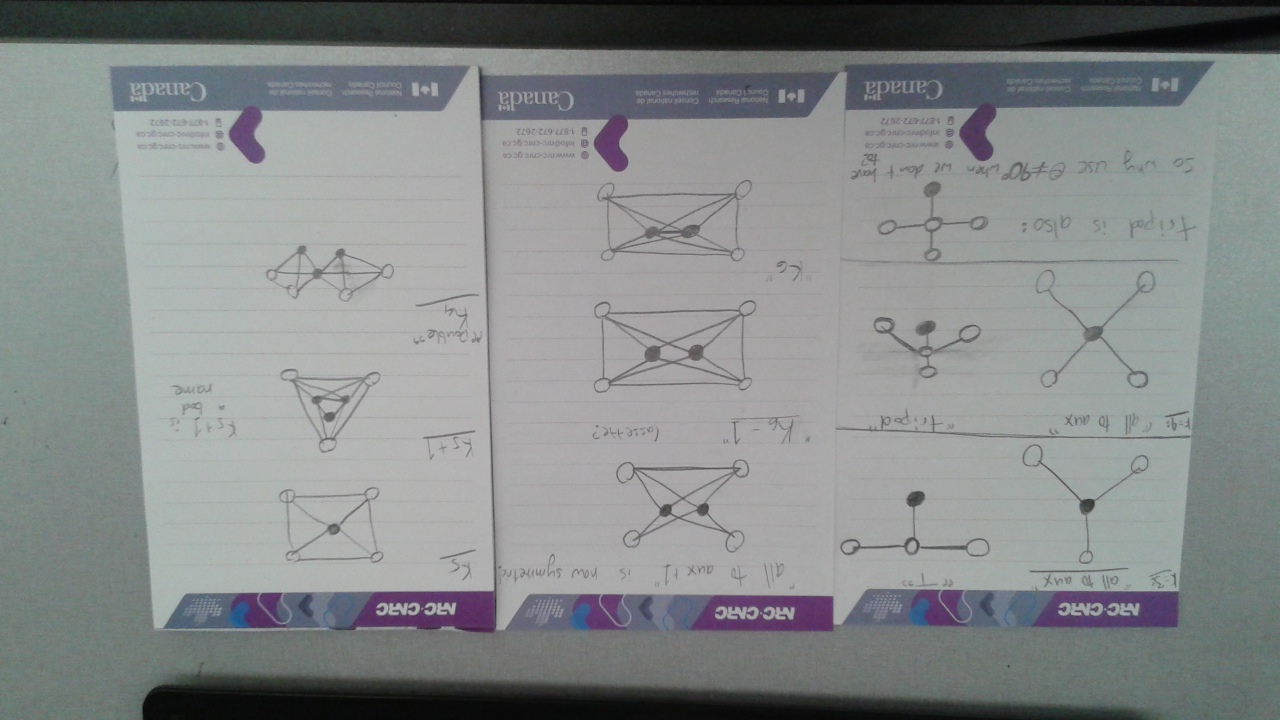 NRC·CNRC
k=3: "all to aux"
"T"
k=4: "all to aux"
"tripod"
tripod is also:
So why use θ≠90° when we don't have to?
National Research
Council Canada
Conseil national de
recherches Canada
www.nrc-cnrc.gc.ca
info@nrc-cnrc.gc.ca
1-877-672-2672
Canada
NRC·CNRC
"all to aux +1" is now symmetric!
"K6 - 1"
Cassette?
"K6"
National Research
Council Canada
Conseil national de
recherches Canada
www.nrc-cnrc.gc.ca
info@nrc-cnrc.gc.ca
1-877-672-2672
Canada
NRC·CNRC
K5
K5+1
K5+1 is
a bad
name
"Double"
K4
National Research
Council Canada
Conseil national de
recherches Canada
www.nrc-cnrc.gc.ca
info@nrc-cnrc.gc.ca
1-877-672-2672
Canada